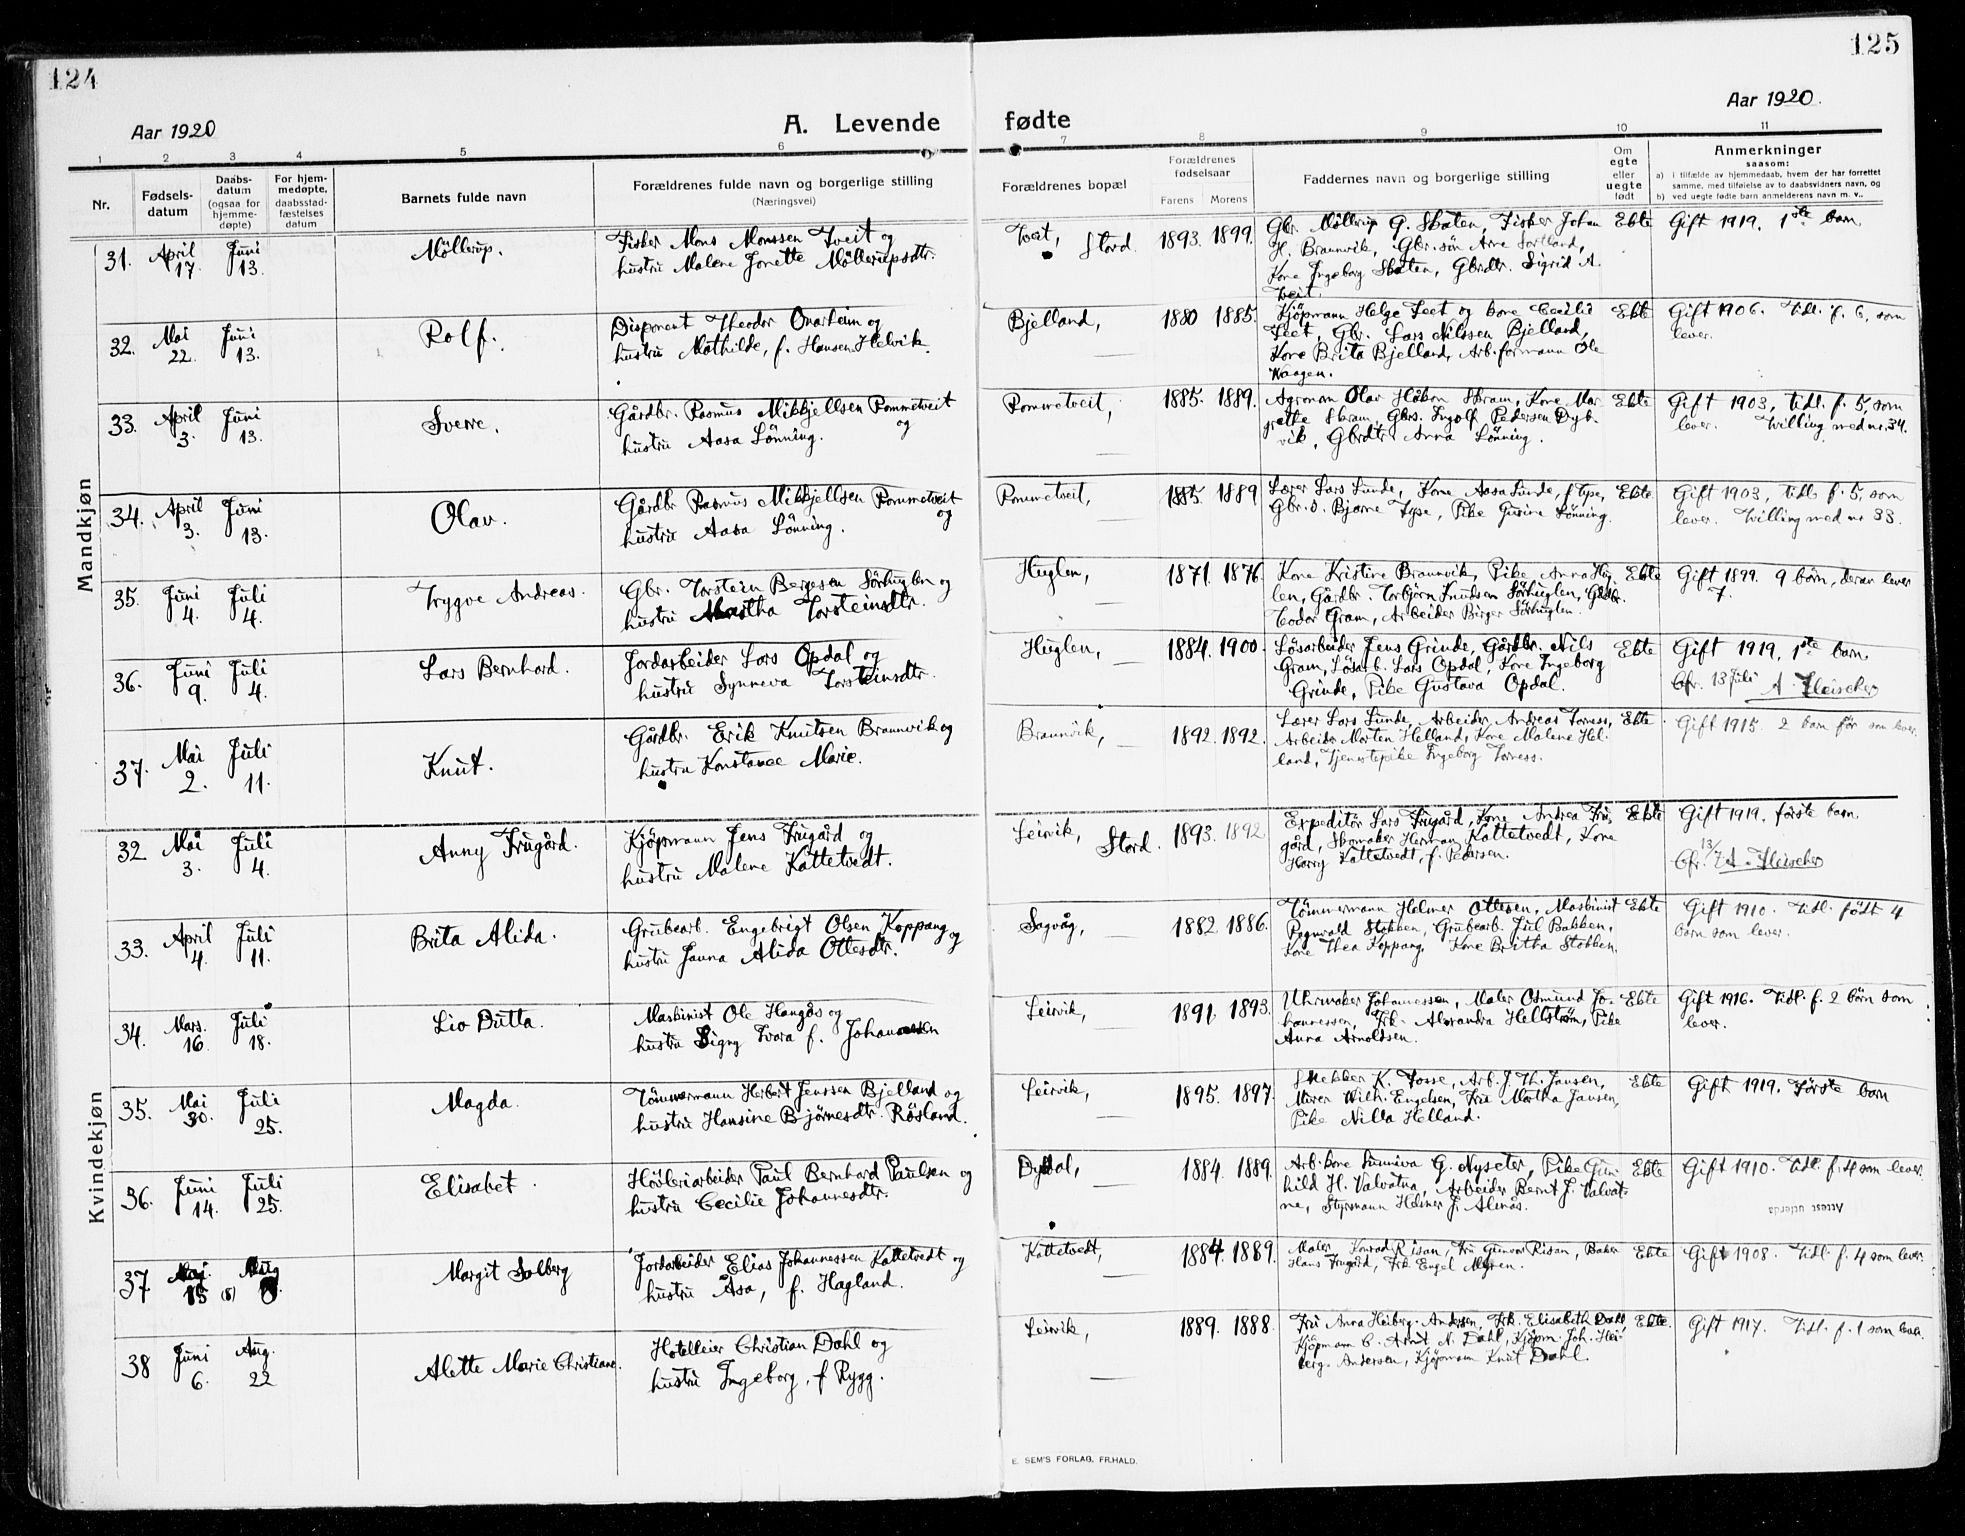 124
125
Aar 1920
A. Levende fødte
Aar 1920.
1 2 3 4 5 6 7 8 9 10 11
Nr.
Fødsels-
datum
Daabs-
datum
(ogsaa for
hjemme-
døpte)
For hjem-
medøpte,
daabsstad-
fæstelses
datum
Barnets fulde navn
Forældrenes fulde navn og borgerlige stilling
(Næringsvei)
Forældrenes bopæl
Forældrenes
fødselsaar
Farens Morens
Faddernes navn og borgerlige stilling
Om
egte
eller
uegte
født
Anmerkninger
saasom:
a) i tilfælde av hjemmedaab, hvem der har forrettet
samme, med tilføielse av to daabsvidners navn, og
b) ved uegte fødte barn anmelderens navn m. v..
Mandkjøn
31. April 17. Juni 13. Möllerup.
Fisker Mons Monssen Tveit og
hustru Malene Jonette Möllerupsdtr.
Tveit, Stord. 1893. 1899.
Gbr. Möllerup G. Skaten, Fisker Johan
H. Braunvik, Gbr.sön Arne Sortland,
Kone Ingeborg Skaten, Gbrdtr. Sigrid A.
Tveit.
Ekte Gift 1919. 1ste barn.
32. Mai 22. Juni 13. Rolf.
Disponent Theodor Onarheim og
hustru Mathilde, f. Hansen Helvik.
Bjelland, — 1880 1885.
Kjöpmann Helge Feet og kone Cecilie
Feet, Gbr. Lars Nilssen Bjelland,
Kone Brita Bjelland, Arb.formann Ole
Waagen.
Ekte Gift 1906. Tidl. f. 6, som
lever.
33. April 3. Juni 13. Sverre.
Gårdbr. Rasmus Mikkjellsen Rommetveit
og
hustru Aasa Lönning.
Rommetveit, — 1885. 1889.
Agronom Olav Håkon Skram, Kone Mar-
grethe Skram, Gbrs. Ingolf Pedersen Dyb-
vik, Gbrdtr. Anna Lönning.
Ekte Gift 1903, Tidl. f. 5, som
lever. Tvilling med nr. 34.
34. April 3. Juni 13. Olav.
Gårdbr Rasmus Mikkjellsen Rommetveit
og
hustru Aasa Lönning.
Rommetveit, — 1885. 1889
Lærer Lars Lunde, Kone Aasa Lunde, f. Type,
Gbr.s. Bjarne Type, Pike Gurine Lönning.
Ekte Gift 1903, tidl. f. 5, som
lever. Tvilling med nr 33.
35. Juni 4. Juli 4. Trygve Andreas.
Gbr. Torstein Bergesen Sörhuglen og
hustru Martha Torsteinsdtr.
Huglen, — 1871. 1876.
Kone Kristine Braunvik, Pike Anna Hug-
len, Gårdbr. Torbjörn Knudsen Sörhuglen, Gårdbr.
Teodor Gram, Arbeider Birger Sörhuglen.
Ekte Gift 1899. 9 börn, derav lever
7.
36. Juni 9. Juli 4. Lars Bernhard.
Jordarbeider Lars Opdal og
hustru Synneva Torsteinsdtr.
Huglen, — 1884. 1900.
Lösarbeider Jens Grinde, Gårdbr. Nils
Gram, Lösarb. Lars Opdal, Kone Ingeborg
Grinde, Pike Gustava Opdal.
Ekte Gift 1919, 1ste barn.
Cfr. 13 Juli A. Fleischer
37. Mai 2. Juli 11. Knut.
Gårdbr. Erik Knutsen Braunvik og
hustru Konstanse Marie.
Braunvik, — 1892. 1892.
Lærer Lars Lunde, Arbeider Andreas Torness,
Arbeider Morten Helland, Kone Malene Hel-
land, Tjenestepike Ingeborg Torness.
Ekte. Gift 1915. 2 barn før som lever.
Kvindekjøn
32 Mai 3. Juli 4. Anny Frugård.
Kjöpmann Jens Frugård og
hustru Malene Kattetvedt.
Leirvik, Stord. 1893. 1892.
Expeditör Lars Frugård, Kone Andrea Fru-
gård, Skomaker Herman Kattetvedt, Kone
Harry Kattetvedt, f. Pedersen.
Ekte Gift 1919. förste barn.
Cfr. 13/7 A. Fleischer
33. April 4. Juli 11. Brita Alida.
Grubearb. Engebrigt Olsen Koppang og
hustru Janna Alida Ottesdtr.
Sagvåg, — 1882. 1886.
Tömmermann Helmer Ottesen, Maskinist
Ragnvald Stokken, Grubearb. Jul Bakken,
Kone Thea Koppang, Kone Britha Stokken.
Ekte Gift 1910. Tidl. født 4
barn som lever.
34. Mars. 16. Juli 18. Liv Dutta.
Maskinist Ole Haugås og
hustru Signy Tvara f. Johannessen
Leirvik, — 1891. 1893.
Uhrmaker Johannessen, Maler Osmund Jo-
hannessen, Frk. Alexandra Hellström, Pike
Anna Arnoldsen.
Ekte Gift 1916. Tidl. f. 2 börn som
lever.
35. Mai 30. Juli 25. Magda.
Tömmermann Herbert Jenssen Bjelland og
hustru Hansine Bjørnesdtr. Røsland.
Leirvik, — 1895. 1897.
Snekker K. Tosse, Arb. J. Th. Jansen,
Murer Wilh. Engelsen, Fru Martha Jansen,
Pike Nilla Helland.
Ekte Gift 1919. Förste barn
36. Juni 14. Juli 25. Elisabet.
Hövleriarbeider Paul Bernhard Paulsen og
hustru Cecilie Johannesdtr.
Dybdal, — 1884. 1889.
Arb.kone Sunniva G. Nyseter, Pike Gun-
hild H. Valvatna, Arbeider Bernt J. Valvat-
ne, Styrmann Helmer J. Alsnås.
Ekte Gift 1910. Tidl. f. 4 som lever.
Attest utferda
37 Mai. 15 Aug (8) 8. Margit Solberg
Jordarbeider Elias Johannessen Kattetvedt og
hustru Åsa, f. Hagland.
Kattetvedt, — 1884. 1889.
Maler Konrad Risan, Fru Gunvor Risan, Baker
Hans Frugård, Frk. Engel Myren.
Ekte Gift 1908. Tidl. f. 4 som lever.
38 Juni 6. Aug. 22 Alette Marie Christiane.
Hotelleier Christian Dahl og
hustru Ingeborg, f Rygg.
Leirvik, — 1889. 1888.
Fru Anna Heiberg-Andersen, Frk. Elisabeth Dahl,
Kjöpmann C. Arnit N. Dahl, Kjöpm. Joh. Hei-
berg-Andersen, Kjöpmann Knut Dahl.
Ekte. Gift 1917. Tidl. f. 1 som lever.
E. SEM'S FORLAG, FR.HALD.